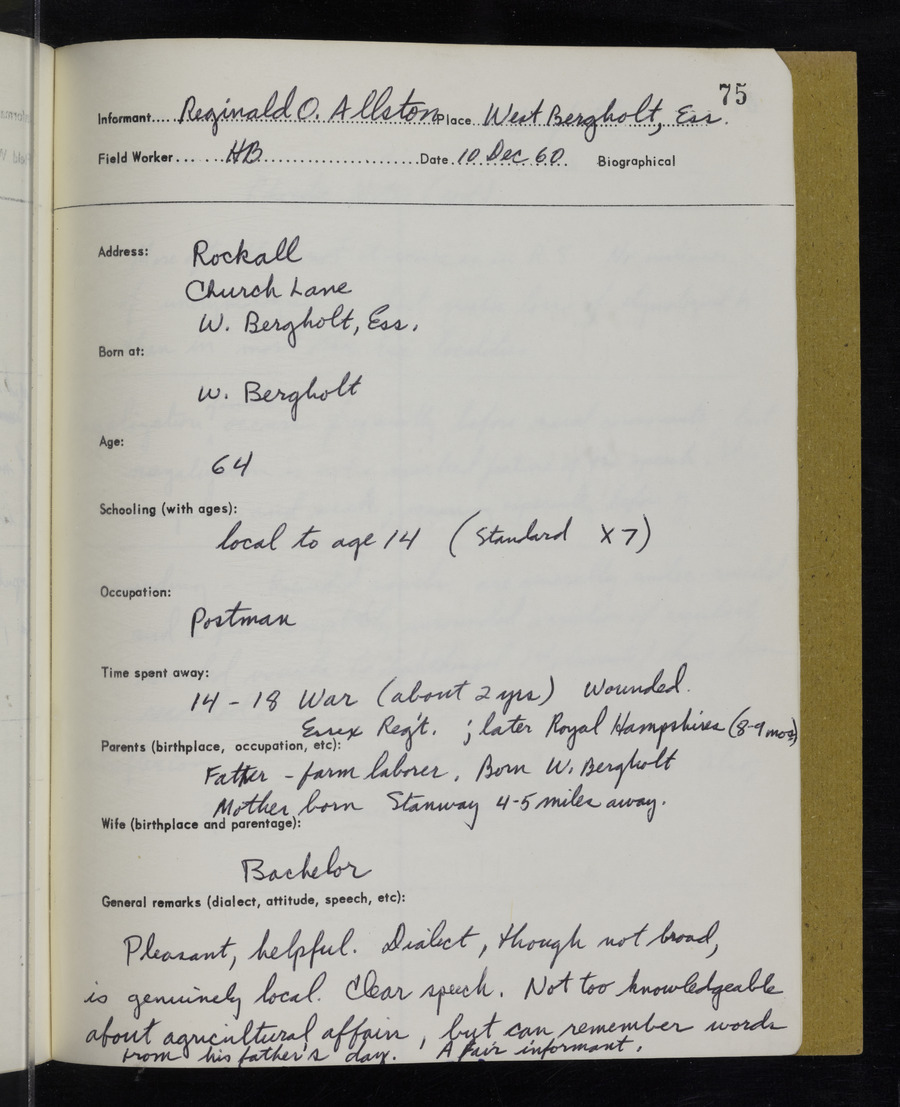 75
Informant.... Reginald O. Allston Place West Bergholt, Ess.
Field Worker... HB Date 10 Dec 60. Biographical
Address: Rockall
Church Lane
W. Bergholt, Ess.
Born at:
W. Bergholt
Age:
64
Schooling (with ages):
local to age 14 (Standard X7)
Occupation:
Postman
Time spent away:
14-18 War (about 2 yrs) Wounded.
Essex Reg't. ; later Royal Hampshires (8-9 mos)
Parents (birthplace, occupation, etc):
Father - farm laborer. Born W. Bergholt
Mother born Stanway 4-5 miles away.
Wife (birthplace and parentage):
Bachelor
General remarks (dialect, attitude, speech, etc):
Pleasant, helpful. Dialect, though not broad,
is genuinely local. Clear speech. Not too knowledgeable
about agricultural affairs, but can remember words
from his father's day. A fair informant.